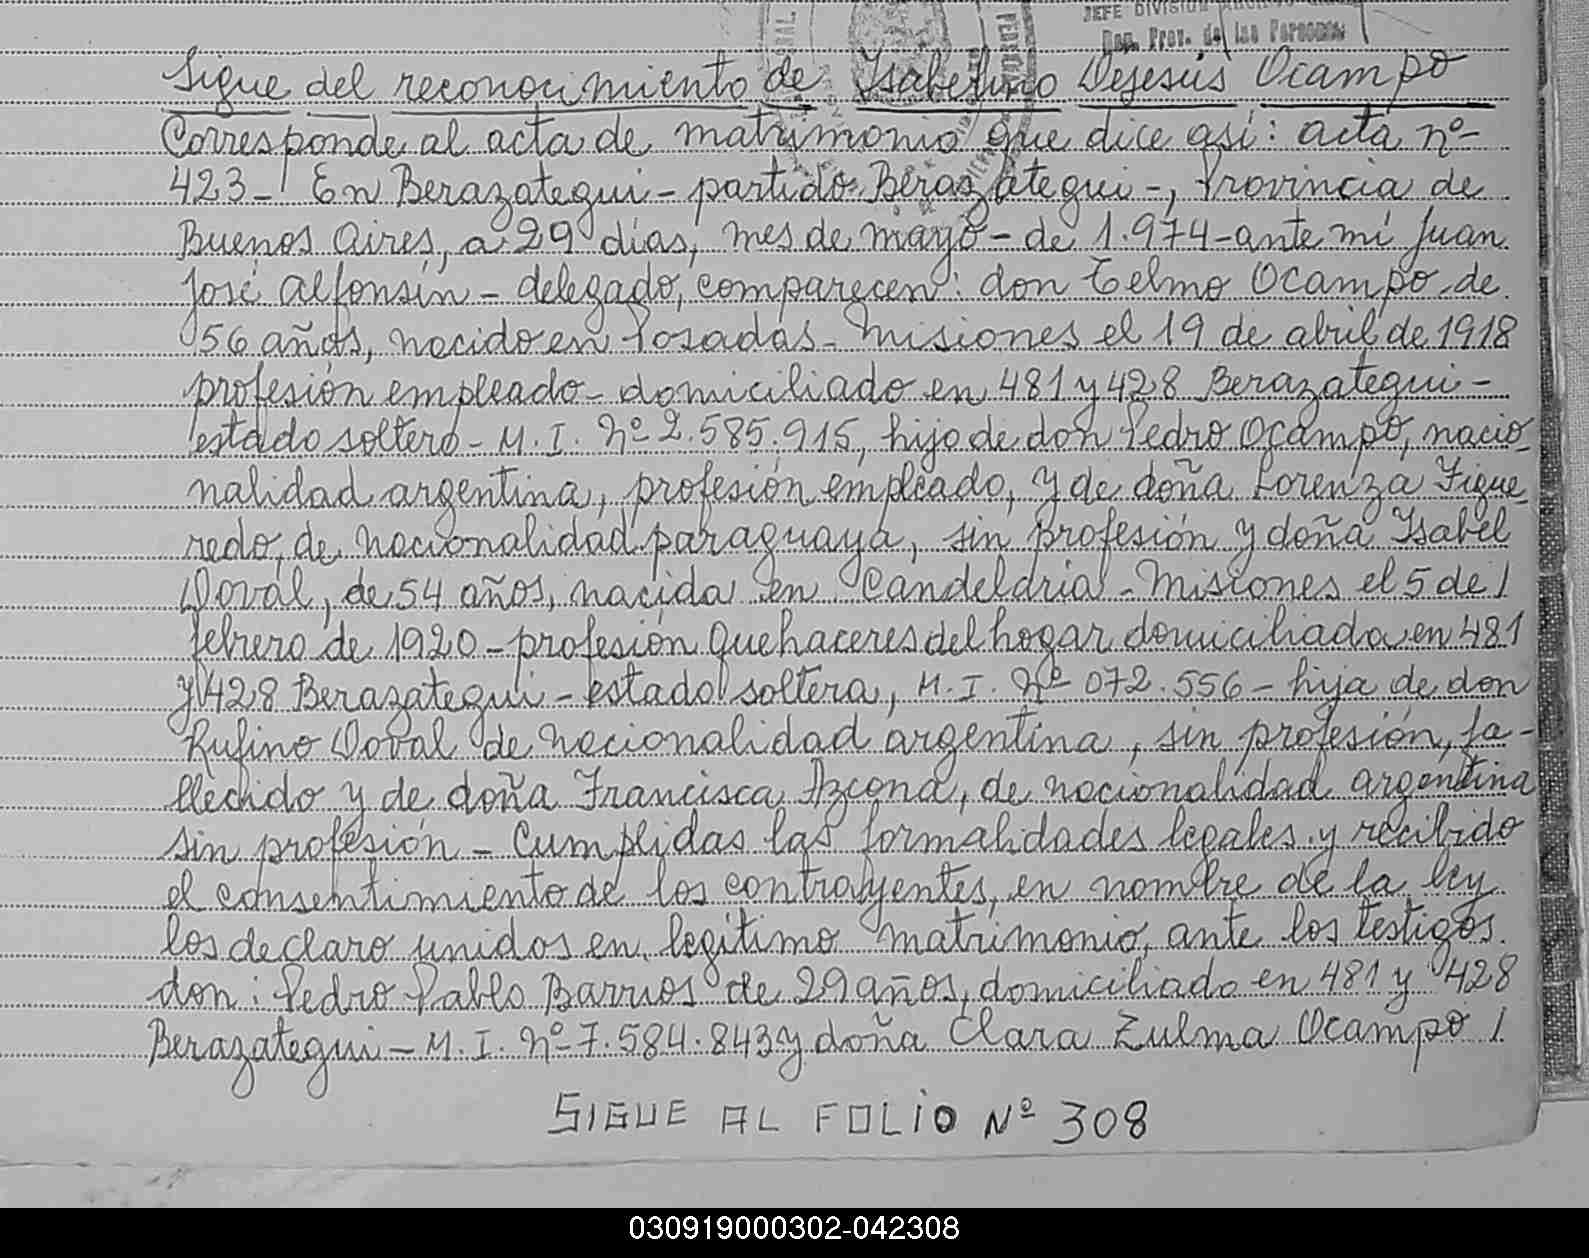 JEFE DIVISION
Reg. Prov. de las Personas
Sigue del reconocimiento de Ysabelino Dejesús Ocampo
Corresponde al acta de matrimonio que dice así: acta nº
423- En Berazategui - partido Berazategui -, Provincia de
Buenos Aires, a 29 días, mes de mayo - de 1.974 - ante mí Juan
José Alfonsín - delegado, comparecen: don Telmo Ocampo de
56 años, nacido en Posadas - Misiones el 19 de abril de 1918
profesión empleado - domiciliado en 481 y 428 Berazategui -
estado soltero - M. I. Nº 2.585.915, hijo de don Pedro Ocampo, nacio-
nalidad argentina, profesión empleado, y de doña Lorenza Figue-
redo, de nacionalidad paraguaya, sin profesión y doña Ysabel
Doval, de 54 años, nacida en Candelaria - Misiones el 5 de /
febrero de 1920 - profesión quehaceres del hogar domiciliada en 481
y 428 Berazategui - estado soltera, M. I. Nº 072.556 - hija de don
Rufino Doval de nacionalidad argentina, sin profesión, fa-
llecido y de doña Francisca Azcona, de nacionalidad argentina
sin profesión - Cumplidas las formalidades legales y recibido
el consentimiento de los contrayentes, en nombre de la ley
los declaro unidos en legítimo matrimonio, ante los testigos
don: Pedro Pablo Barrios de 29 años, domiciliado en 481 y 428
Berazategui - M. I. Nº 7.584.843 y doña Clara Zulma Ocampo /
SIGUE AL FOLIO Nº 308
030919000302-042308